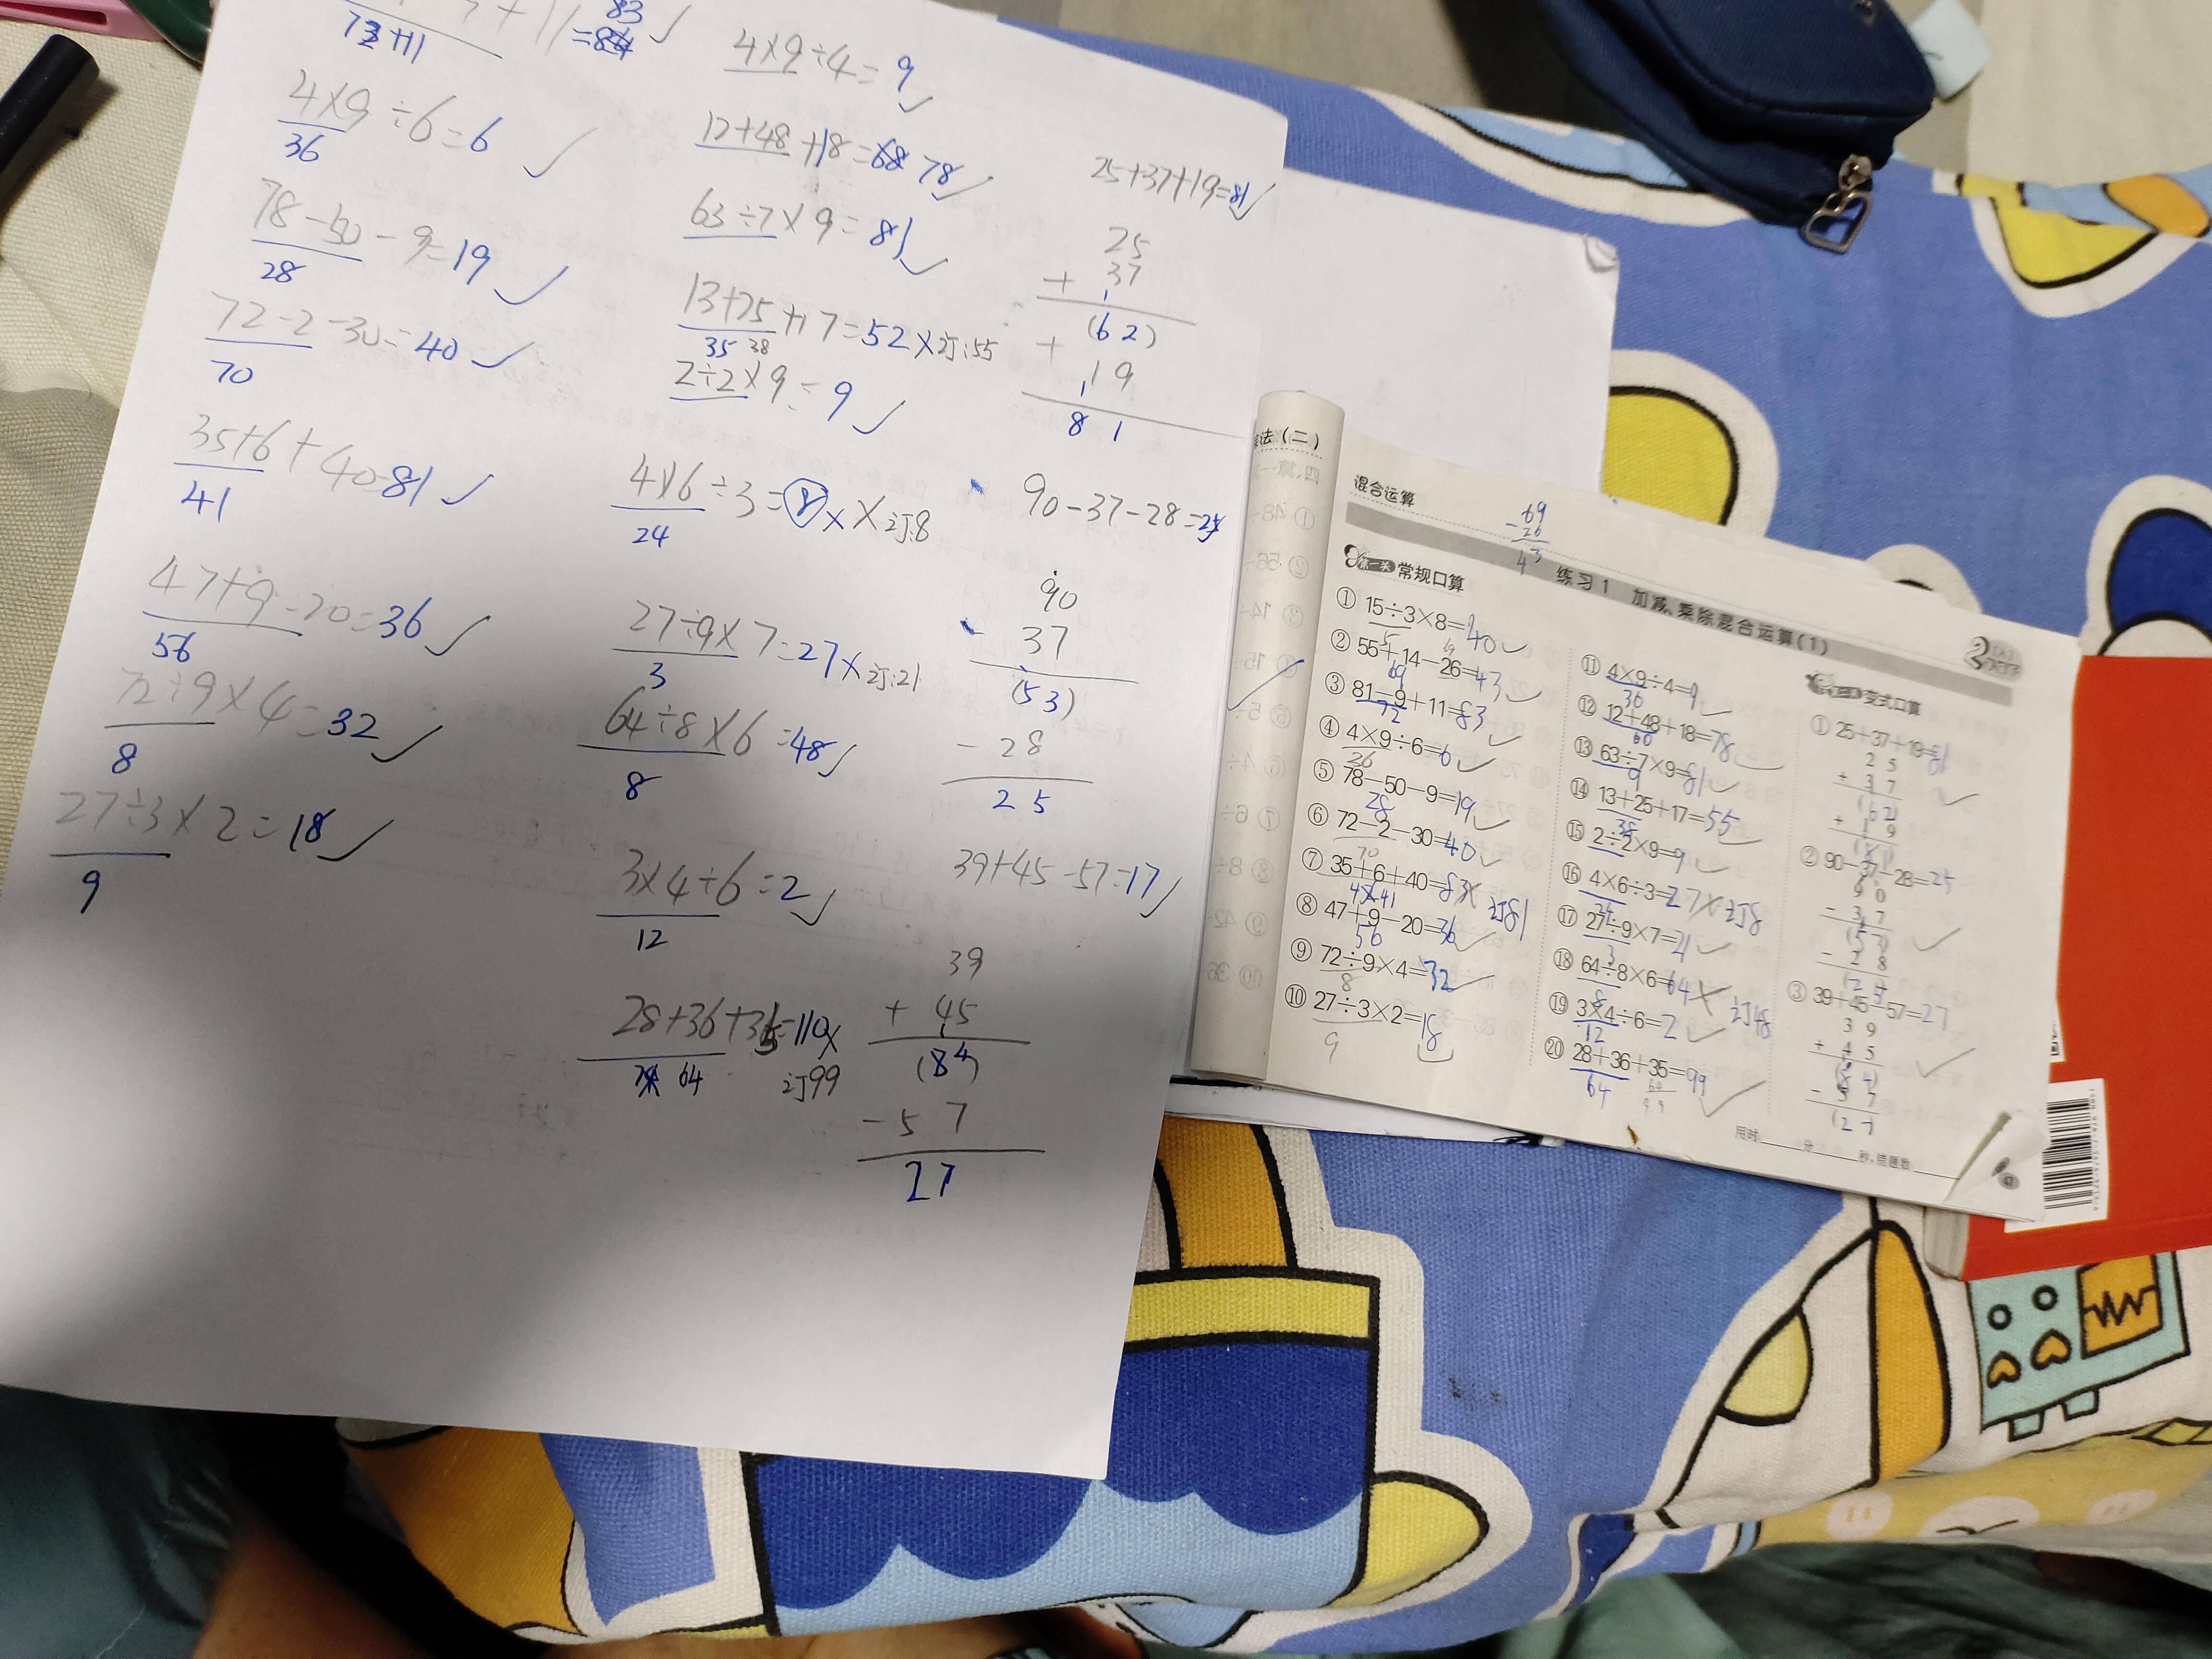 +11=83
72+11
4×9÷6=6
36
78-50-9=19
28
72-2-30=40
70
35+6+40=81
41
47+9-20=36
56
72÷9×4=32
8
27÷3×2=18
9
4×9÷4=9
12+48+18=68 78
63÷7×9=81
13+25+17=52×订:55
35 38
2÷2×9=9
4×6÷3=××订:8
24
27÷9×7=27×订:21
3
64÷8×6=48
8
3×4÷6=2
12
28+36+35=110×
64
订99
25+37+19=81
25
+ 37
(62)
+ 19
81
90-37-28=25
90
- 37
(53)
- 28
25
39+45-57=17
39
+ 45
(84)
- 57
27
法(二)
混合运算
69
-26
43
练习1 加减、乘除混合运算(1)
第一关 常规口算
① 15÷3×8=40
5
② 55+14-26=43
69
③ 81-9+11=83
72
④ 4×9÷6=6
⑤ 78-50-9=19
28
⑥ 72-2-30=40
70
⑦ 35+6+40=83× 订81
41
⑧ 47+9-20=36
56
⑨ 72÷9×4=32
8
⑩ 27÷3×2=18
9
⑪ 4×9÷4=9
36
⑫ 12+48+18=78
60
⑬ 63÷7×9=81
9
⑭ 13+25+17=55
38
⑮ 2÷2×9=9
⑯ 4×6÷3=27×订8
24
⑰ 27÷9×7=21
3
⑱ 64÷8×6=64× 订48
8
⑲ 3×4÷6=2
12
⑳ 28+36+35=99
64
变式口算
① 25+37+19=81
25
+ 37
(62)
+ 19
② 90-37-28=25
90
- 37
(53)
- 28
(25
③ 39+45-57=27
39
+ 45
(84)
- 57
(27
用时____分____秒,错题数____
47